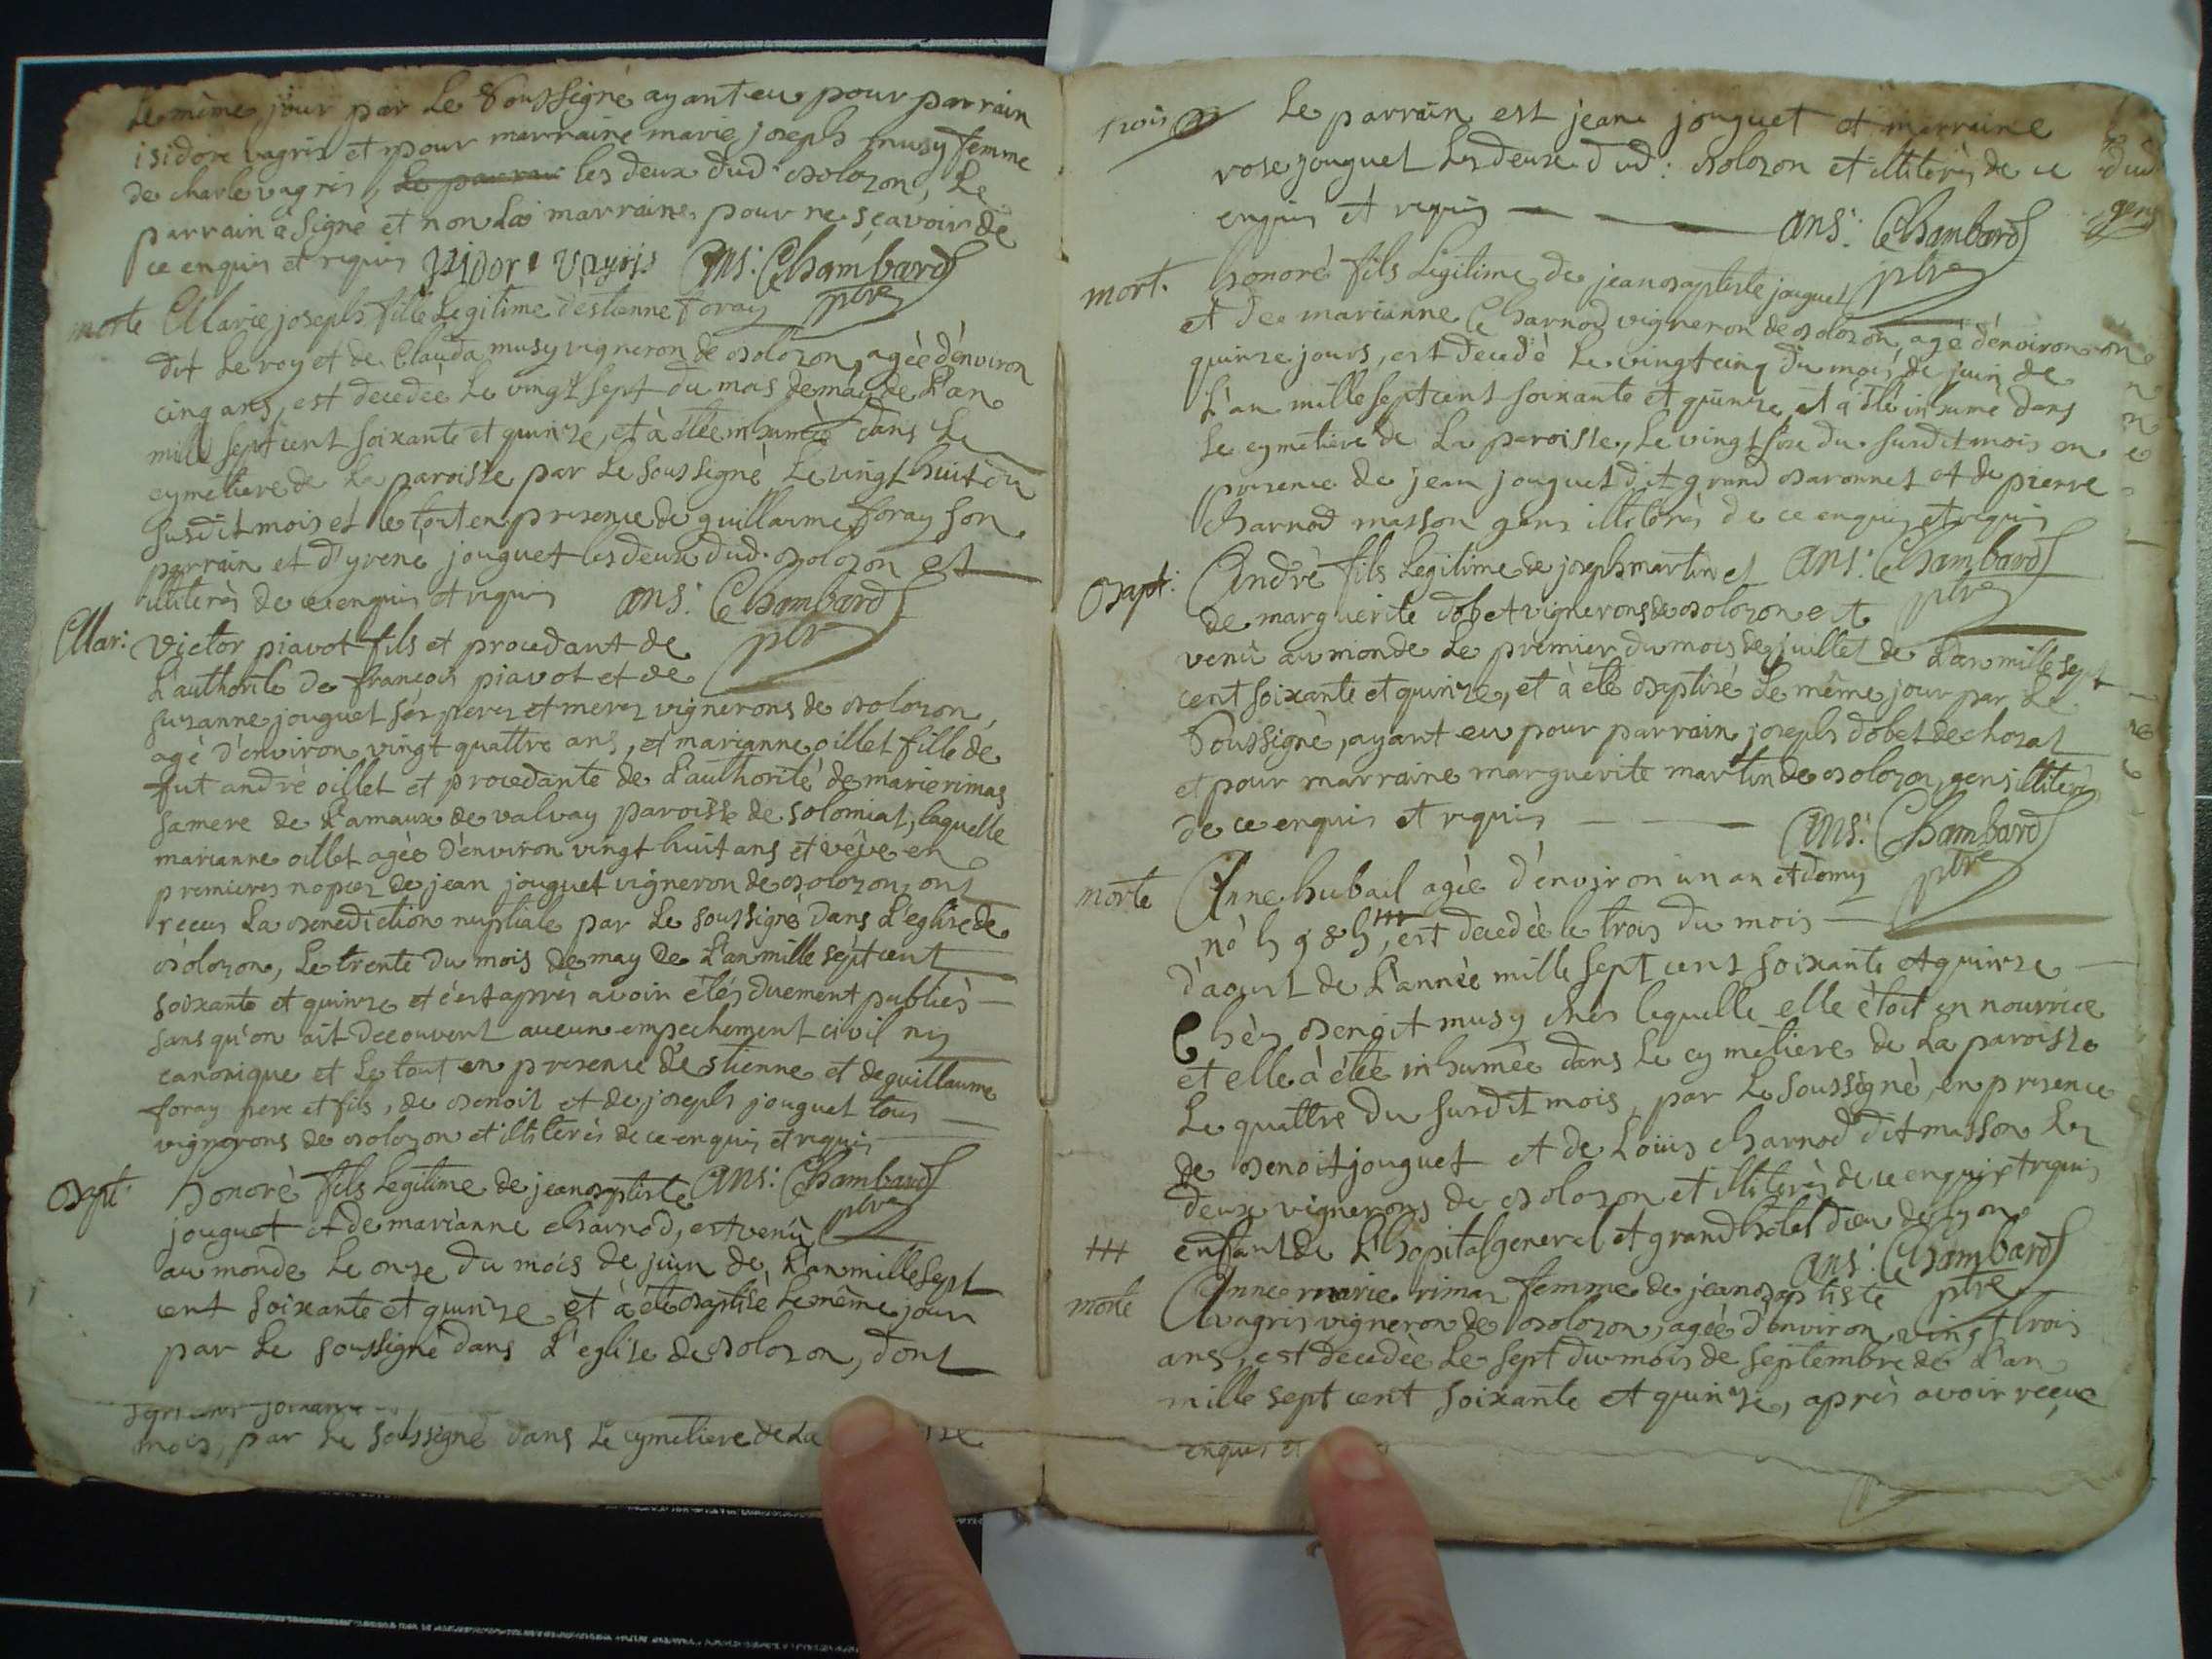 le même jour par le Soussigné ayant eu pour parrain
isidore vagris et pour marraine marie joseph musy femme
de charle vagris, les deux dud. bolozon, le
parrain à signé et non la marraine, pour ne sçavoir de
ce enquis et requis isidore vagris Ans: Chambard
ptre
morte Marie joseph fille legitime d'estienne foray
dit le roy et de Clauda musy vigneron de bolozon, agèe d'environ
cinq ans, est decedèe le vingt sept du mois de may de l'an
mille sept cent soixante et quinze, et à étée inhumée dans le
cymetiere de la paroisse par le soussigné le vingt huit du
susdit mois et le tout en presence de guillaume foray son
parrain et d'yrené jouguet les deux dud. bolozon et
illiterès de ce enquis et requis Ans: Chambard
ptre
Mar: Victor piavot fils et procedant de
l'authorité de françois piavot et de
suzanne jouguet ses peres et meres vignerons de bolozon,
agè d'environ vingt quattre ans, et marianne oillet fille de
fut andrè oillet et procedante de l'authorité de marie rimas
sa mere de Lamaux de valvay paroisse de solomiat, laquelle
marianne oillet agèe d'environ vingt huit ans et vève en
premieres nopces de jean jouguet vigneron de bolozon, ont
recus la benediction nuptiale par le soussigné dans l'eglise de
bolozon, le trente du mois de may de l'an mille sept cent
soixante et quinze et c'est après avoir étés duement publiès
sans qu'on ait decouvert aucun empechement civil ny
canonique et le tout en presence d'estienne et de guillaume
foray pere et fils, de benoit et de joseph jouguet tous
vignerons de bolozon et illiterès de ce enquis et requis
Bapt. honorè fils legitime de jean baptiste Ans: Chambard
ptre
jouguet et de marianne charnod, est venu
au monde le onze du mois de juin de l'an mille sept
cent soixante et quinze et à été baptisé le même jour
par le soussigné dans l'eglise de bolozon, dont
mois, par le soussigné dans le cymetiere de la
le parrain est jean jouguet et marraine
rose jouguet les deux dud: bolozon et illiterès de ce
enquis et requis Ans: Chambard
ptre
mort. honorè fils legitime de jean baptiste jouguet
et de marianne Charnod vigneron de bolozon, agè d'environ
quinze jours, est decedè le vingt cinq du mois de juin de
l'an mille sept cent soixante et quinze, et à été inhumè dans
le cymetiere de la paroisse, le vingt six du susdit mois en
presence de jean jouguet dit grand baronnet et de pierre
Charnod masson gens illiterès de ce enquis et requis
Bapt: Andrè fils legitime de joseph martin et Ans: Chambard
ptre
de marguerite dobet vignerons de bolozon est
venu au monde le premier du mois de juillet de l'an mille sept
cent soixante et quinze, et à été baptisé le même jour par le
Soussigné, ayant eu pour parrain joseph dobet de chozat
et pour marraine marguerite martin de bolozon, gens illiterès
de ce enquis et requis Ans: Chambard
ptre
morte Anne hubail agèe d'environ un an et demy
est decedèe le trois du mois
d'aoust de l'annèe mille sept cent soixante et quinze
Chès benoit musy chès lequelle elle ètoit en nourrice
et elle à étée inhumèe dans le cymetiere de la paroisse
le quattre du susdit mois, par le soussigné, en presence
de benoit jouguet et de Loüis charnod dit masson les
deux vignerons de bolozon et illiterès de ce enquis et requis
+++ enfant de l'hopital general et grand hotel dieu de lyon
Ans: Chambard
ptre
morte Anne marie rimas femme de jean baptiste
vagris vigneron de bolozon, agèe d'environ vingt trois
ans, est decedèe le sept du mois de septembre de l'an
mille sept cent soixante et quinze, après avoir reçue
enquis et